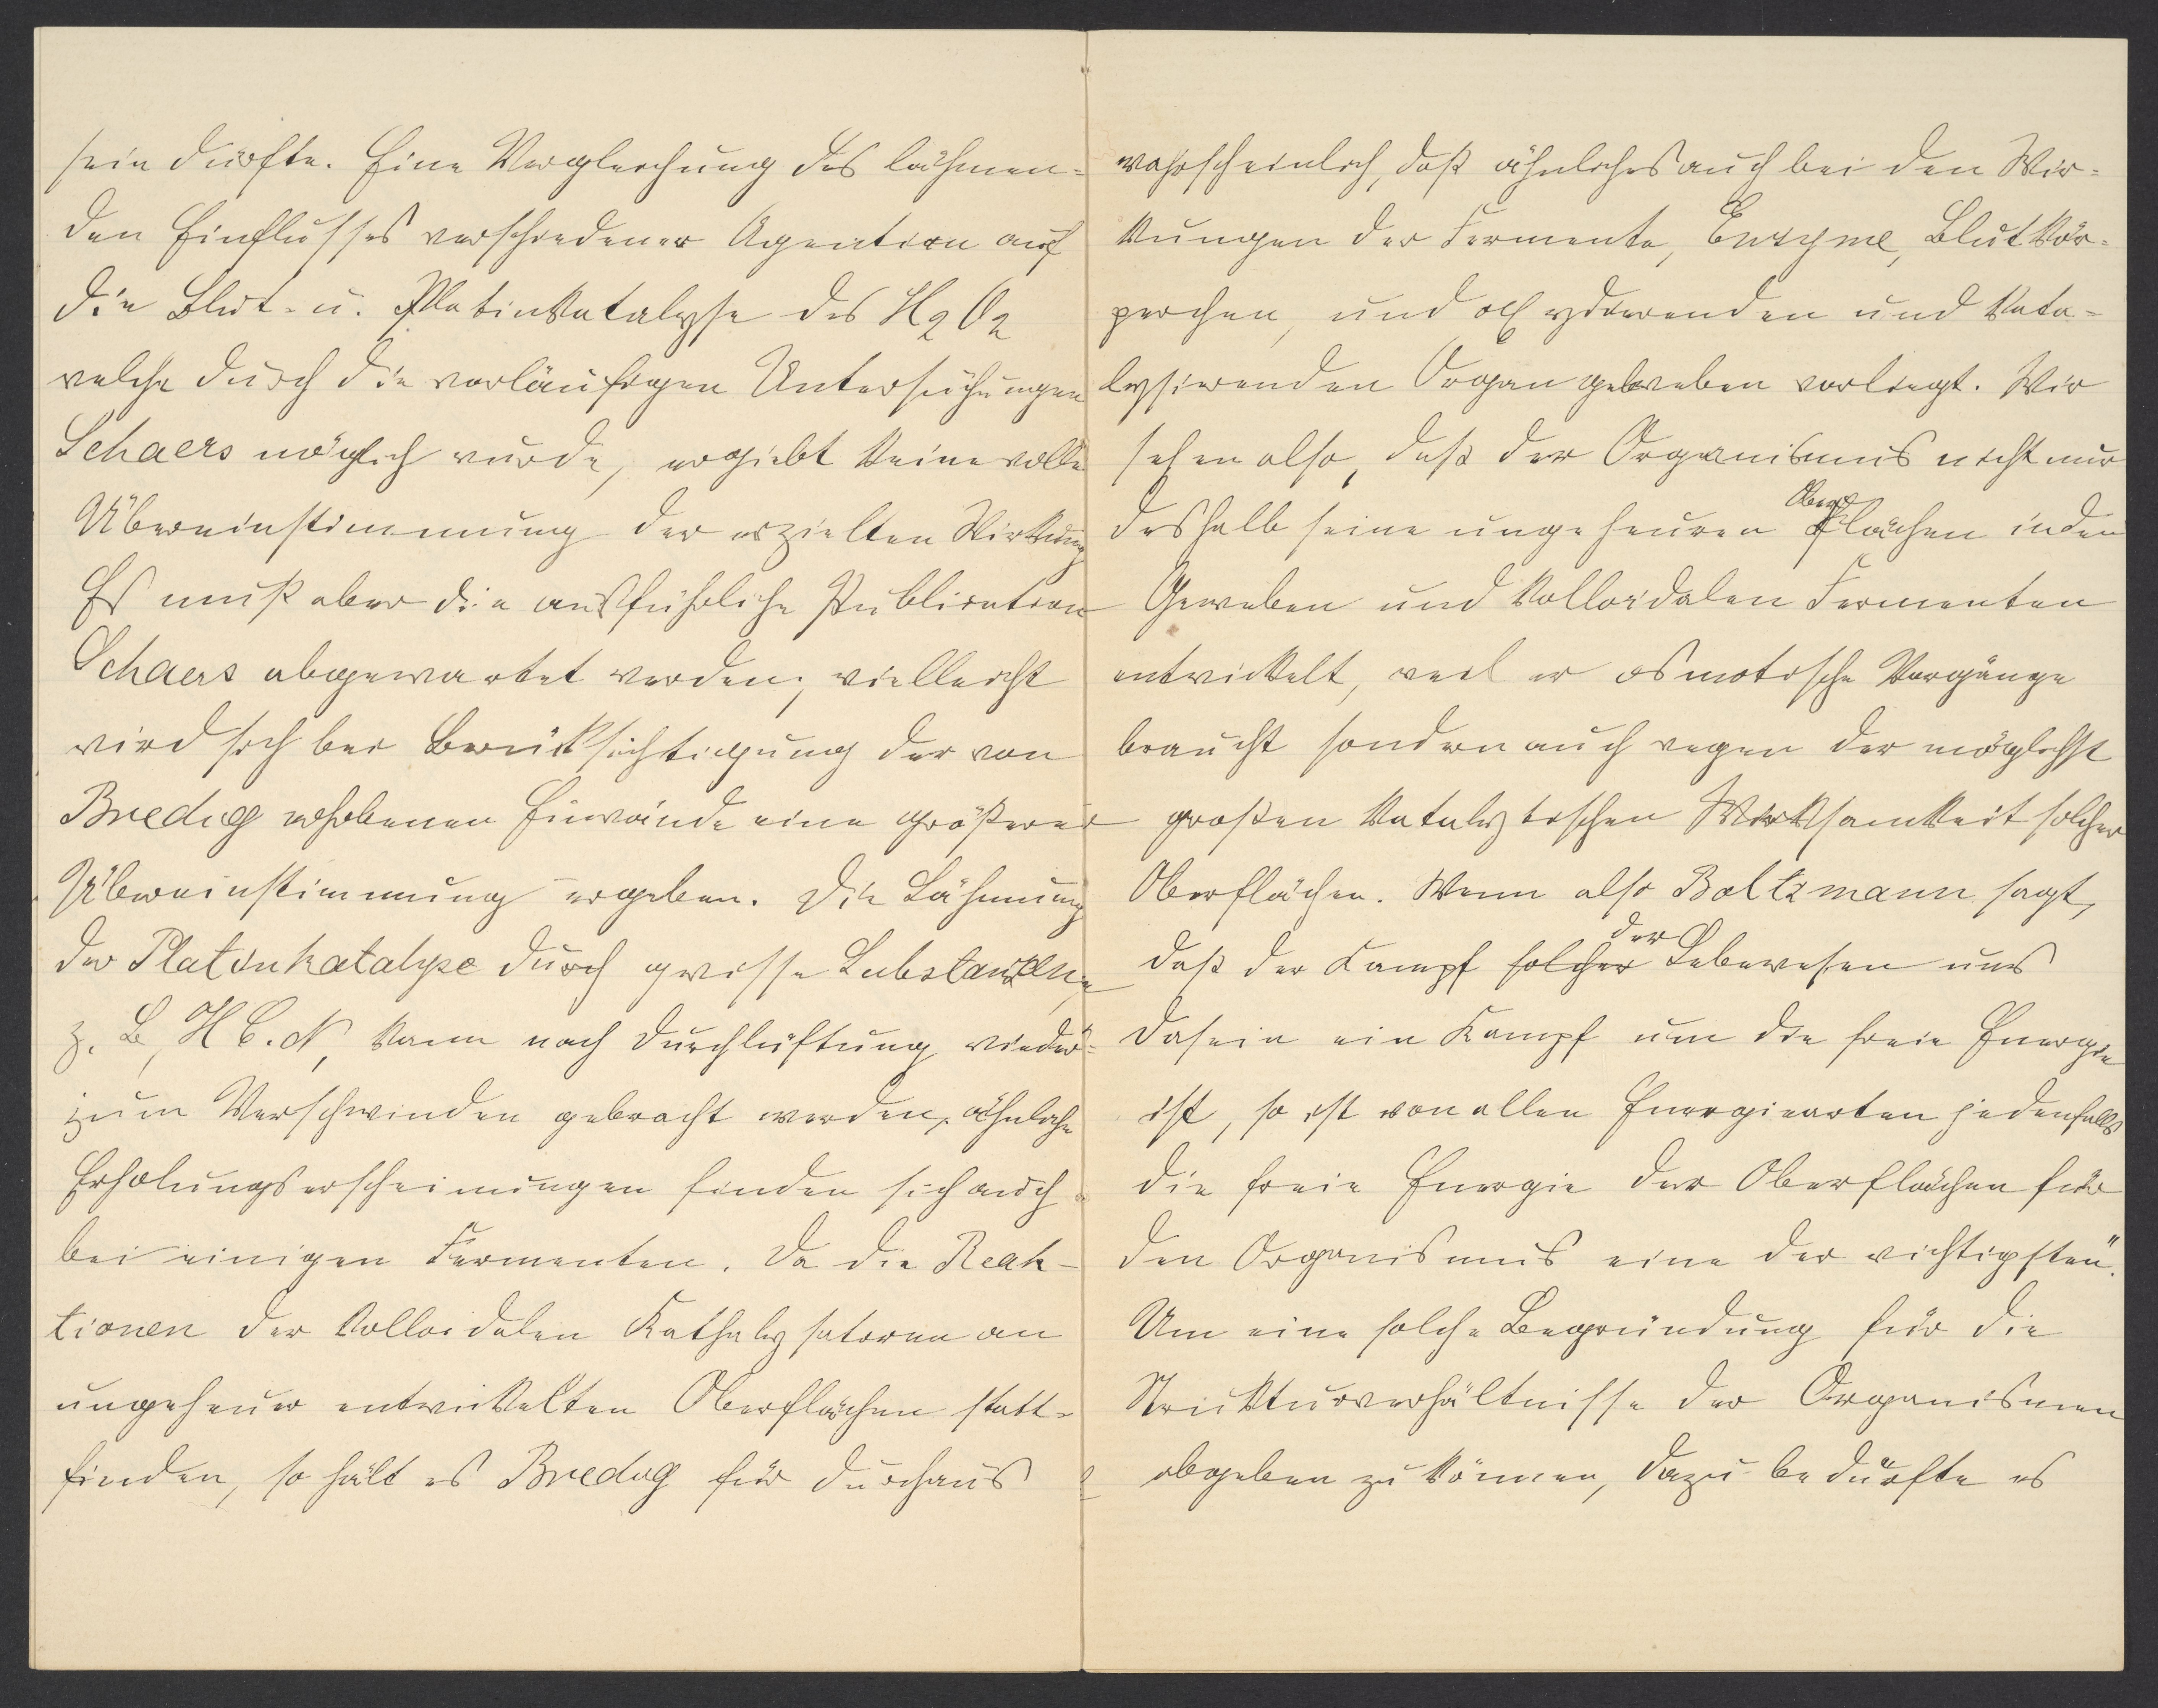 sein dürfte. Eine Vergleichung des lähmen-
den Einflusses verschiedener Agentien auf
die Blut- u. Platinkatalyse des H2O2
welche durch die vorläufigen Untersuchungen
Schaers möglich wurde, ergiebt keine volle
Übereinstimmung der erzielten Wirkung
Es muß aber die ausführliche Publication
Schaers abgewartet werden; vielleicht
wird sich bei Berücksichtigung der von
Bredig erhobenen Einwände eine größere
Übereinstimmung ergeben. Die Lähmung
der Platinkatalyse durch gewisse Substanzen,
z. B, H C. N, kann nach Durchlüftung wieder
zum Verschwinden gebracht werden, ähnliche
Erholungserscheinungen finden sich auch
bei einigen Fermenten. Da die Reak-
tionen der kolloidalen Kathalysatoren an
ungeheuer entwickelten Oberflächen statt-
finden, so hält es Bredig für durchaus
wahrscheinlich, daß ähnliches auch bei den Wir-
kungen der Fermente, Enzyme, Blutkör-
perchen, und oxydierenden und kata-
lysierenden Organgeweben vorliegt. Wir
sehen also, daß der Organismus nicht nur
deshalb seine ungeheuren Oberflächen in den
Geweben und kolloidalen Fermenten
entwickelt, weil er osmotische Vorgänge
braucht sondern auch wegen der möglichst
großen katalytischen Wirksamkeit solcher
Oberflächen. Wenn also Boltzmann sagt,
daß der Kampf solcher der Lebewesen ums
Dasein ein Kampf um die freie Energie
ist, so ist von allen Energiearten jedenfalls
die freie Energie der Oberflächen für
den Organismus eine der wichtigsten".
Um eine solche Begründung für die
Strukturverhältnisse der Organismen
abgeben zu können, dazu bedürfte es